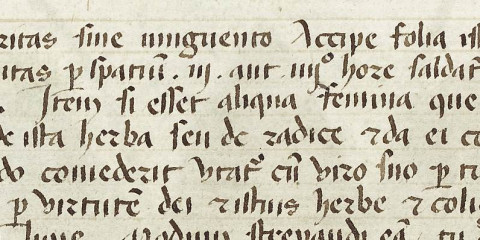 ritas sine unguento Accipe folia ist
uitas ꝑ spatiū . iij . aut . iiijᵒʳ hore saldat
Item si esset aliqua femina que
de ista herba seu de radice ⁊ da ei co
do comederit utat͛ cū viro suo ꝑ tr
ꝑ virtutē dei ⁊ istius herbe ⁊ coli